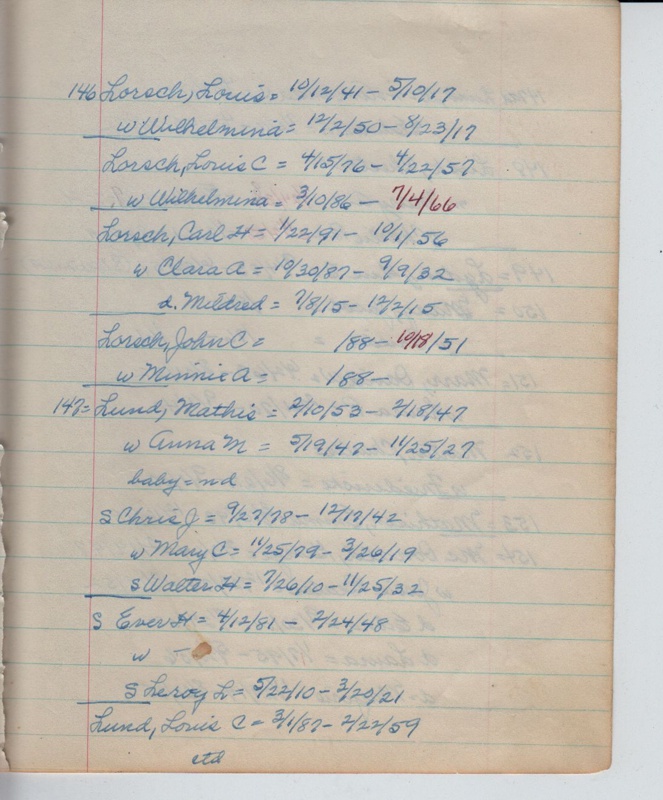 146 Lorsch, Louis = 10/12/41 - 5/10/17
w Wilhelmina = 12/2/50 - 8/23/17
Lorsch, Louis C = 4/15/76 - 4/22/57
w Wilhelmina = 3/10/86 - 7/4/66
Lorsch, Carl H = 1/22/91 - 10/1/56
w Clara A = 10/30/87 - 9/9/32
d. Mildred = 7/8/15 - 12/2/15
Lorsch, John C = 188 - 10/18/51
w Minnie A = 188 -
147 = Lund, Mathis = 2/10/53 - 2/18/47
w Anna M = 5/19/47 - 11/25/27
baby = nd
S Chris J = 9/27/78 - 12/17/42
w Mary C = 11/25/79 - 3/26/19
s Walter H = 7/26/10 - 11/25/32
S Ever H = 4/12/81 - 2/24/48
w -
S Leroy L = 5/22/10 - 3/20/21
Lund, Louis C = 3/1/87 - 2/22/59